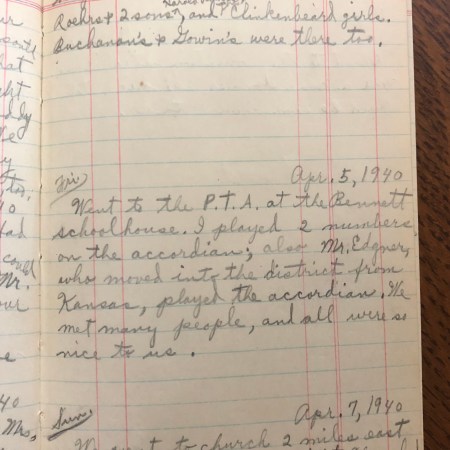 Roehrs & 2 sons, and Clinkenbeard girls.
Buchanan's & Gowin's were there too.
Fri. Apr. 5, 1940
Went to the P.T.A. at the Bennett
schoolhouse. I played 2 numbers
on the accordian; also Mr. Edgner,
who moved into the district from
Kansas, played the accordian. We
met many people, and all were so
nice to us.
Sun. Apr. 7, 1940
We went to church 2 miles east